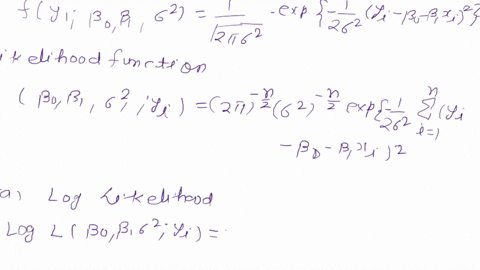 f(yi; β0, β1, σ²) = 1/√2πσ² · exp{-1/2σ² (yi-β0-β1xi)²}
ikelihood function
(β0, β1, σ², ; yi) = (2π)^-n/2 (σ²)^-n/2 exp{-1/2σ² Σ i=1 n (yi
- β0 - β1xi)²
a) Log Likelihood
Log L(β0, β1 σ²; yi) =